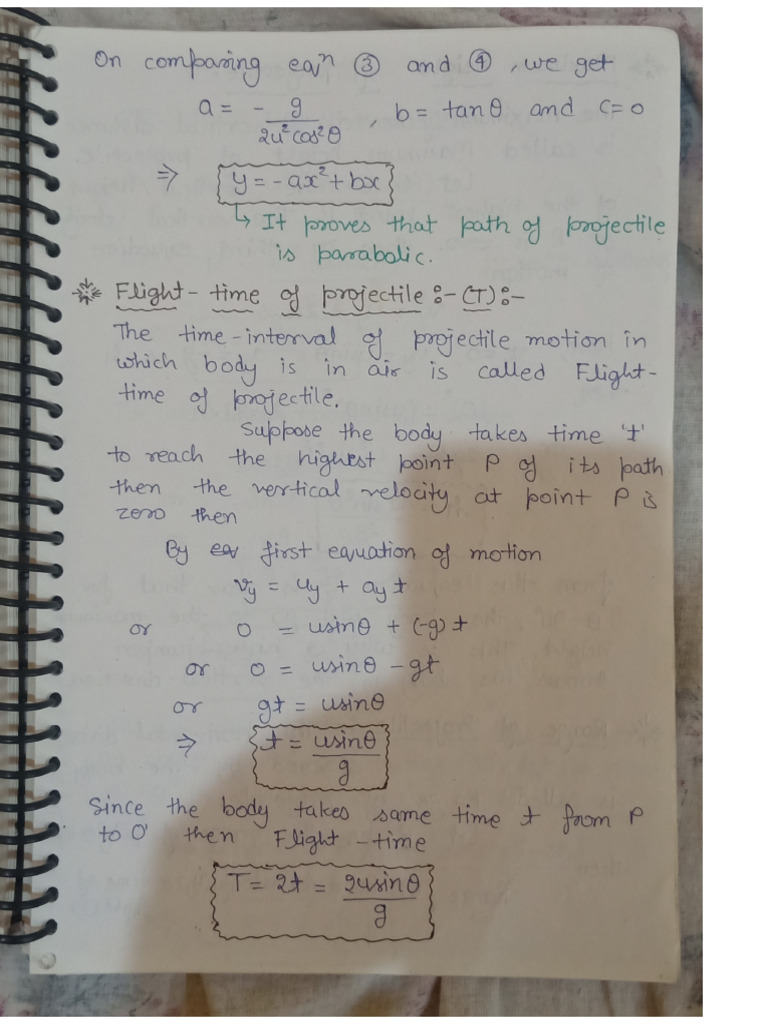 On comparing eqⁿ ③ and ④, we get
a = - g / 2u²cos²θ , b = tanθ and c=0
⇒ y = -ax² + bx
↳ It proves that path of projectile
is parabolic.
Flight-time of projectile :- (T) :-
The time-interval of projectile motion in
which body is in air is called Flight-
time of projectile.
Suppose the body takes time 't'
to reach the highest point P of its path
then the vertical velocity at point P is
zero then
By first equation of motion
vy = uy + ay t
or 0 = usinθ + (-g) t
or 0 = usinθ - gt
or gt = usinθ
⇒ t = usinθ / g
Since the body takes same time t from P
to O' then Flight-time
T = 2t = 2usinθ / g